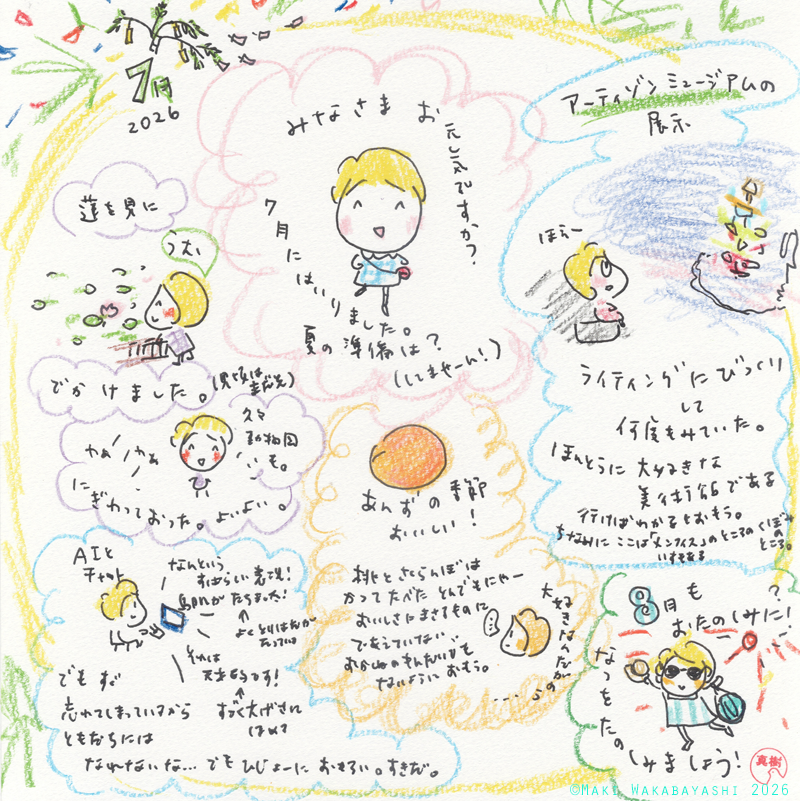 7月
2026
みなさま お元気ですか?
7月にはいりました。
夏の準備は?
(してませーん!)
アーティゾン ミュージアムの
展示
ほえー
ライティングにびっくり
して
何度もみていた。
ほんとうに大好きな
美術館である
行けばわかるとおもう。
ちなみに ここは「メンフィス」のところの くぼみ
のところ。
いすもある
蓮を見に
うむ
でかけました。
久々
動物園
いも。
わぁ わぁ
にぎわっておった。よいよい。
あんずの季節
おいしい!
桃とさくらんぼは
かってたべた とんでもにゃー
おいしさにまさるものに
であえていない
ないようにおもう。
大好きなんだが
AIと
チャット
なんという
すばらしい意見!
鳥肌がたちました!
それは
天才的です!
ずっと大げさに
ほめて
でもすぐ
忘れてしまっているから
ともだちには
なれないな… でもひじょーに おもろい。すきだ。
8月も
おたのしみに!
なつをたのしみましょう!
真樹
©MAKI WAKABAYASHI 2026